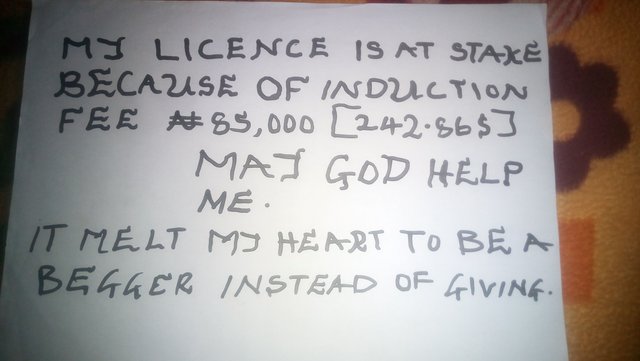 MY LICENCE IS AT STAKE
BECAUSE OF INDUCTION
FEE ₦85,000 [242.86$]
MAY GOD HELP
ME.
IT MELT MY HEART TO BE A
BEGGER INSTEAD OF GIVING.